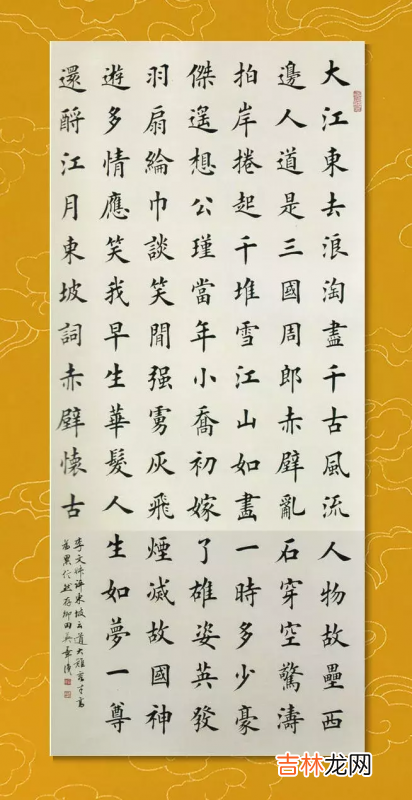 大江東去浪淘盡千古風流人物故壘西
邊人道是三國周郎赤壁亂石穿空驚濤
拍岸捲起千堆雪江山如畫一時多少豪
傑遙想公瑾當年小喬初嫁了雄姿英發
羽扇綸巾談笑閒强虜灰飛煙滅故國神
遊多情應笑我早生華髮人生如夢一尊
還酹江月東坡詞赤壁懷古
東坡云道大難
吉林龙网